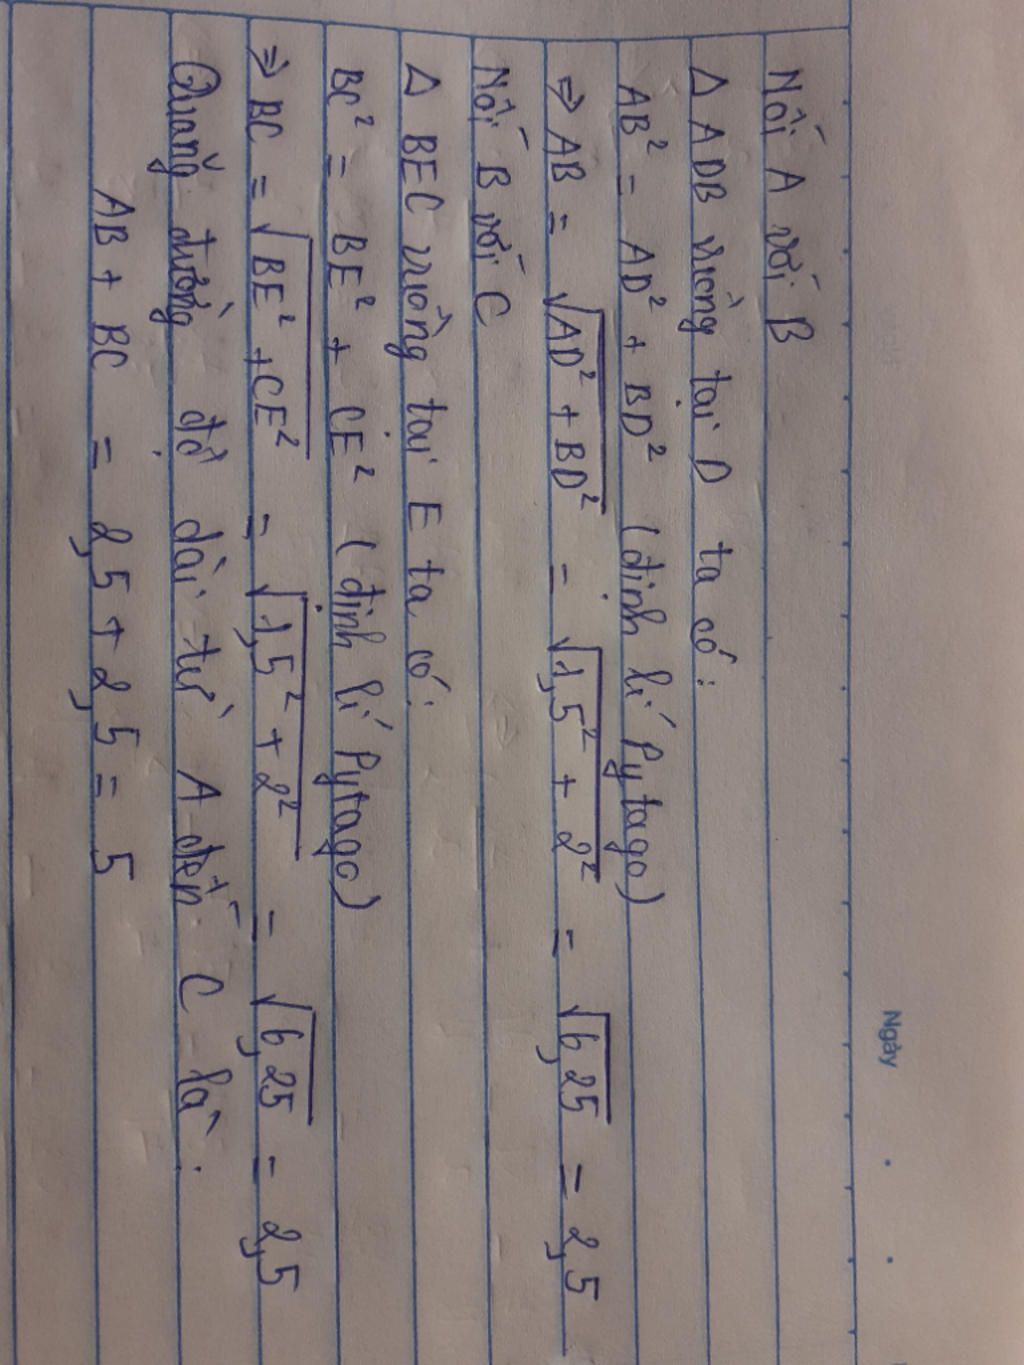 Ngày
Nối A với B
Δ ADB vuông tại D ta có:
AB² = AD² + BD² (định lí Pytago)
⇒ AB = √AD² + BD² = √1,5² + 2² = √6,25 = 2,5
Nối B với C
Δ BEC vuông tại E ta có:
BC² = BE² + CE² (định lí Pytago)
⇒ BC = √BE² + CE² = √1,5² + 2² = √6,25 = 2,5
Quãng đường đó dài từ A đến C là:
AB + BC = 2,5 + 2,5 = 5